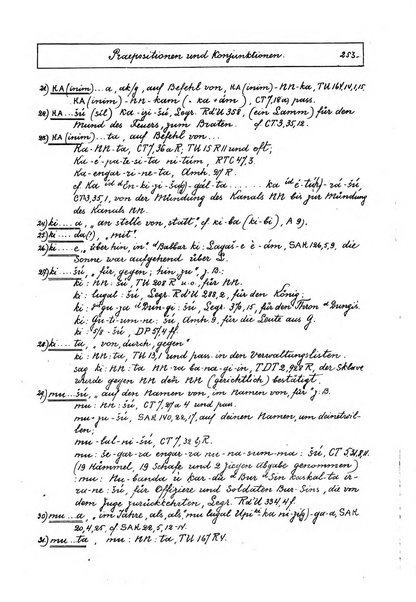 Praepositionen und Konjunktionen. 253.
21) KA (inim)...a, ak/g, auf Befehl von, KA (inim)-NN-ka, TU 164,14,1,15.
KA (inim)-NN-kam (-ka-àm), CT 7, pass.
22) KA...šú (sil) ka-gi-šú, Legr. Rd'U 358, (ein Lamm) für den
Mund des Feuers, zum Braten. cf CT 3,35,12.
23) KA (inim)...ta, auf Befehl von...
Ka-NN-ta, CT 7, TU 15 R II und oft,
Ka-é-pa-te-si-ta ni-túm, RTC 47,3.
Ka-engar-ri-ne-ta, Amh. R.
cf Ka
CT 3,35,1, von der Mündung des Kanals NN bis zur Mündung
des Kanals NN.
24) ki....a, "an stelle von, statt" cf ki-ba (ki-bi), A 9).
25) ki....da(?), "mit".
26) ki....e, "über hin, in" Babbar ki-Lagaš-e è-àm, SAK 126,5,9, die
Sonne war aufgehend über L.
27) ki....šú, "für, gegen; hin, zu" z.B:
ki-NN-šú, TU 208 R u.o., für NN.
ki-lugal-šú, Legr. Rd'U 288,2, für den König.
ki-gu-za Dun-gi-šú, Legr. 376,15, für den Thron Dungis.
ki-Gu-ti-um-ne-šú, Amh. 9, für die Leute aus G.
DP 57,4 ff.
28) ki....ta, "von, durch, gegen"
ki-NN-ta, TU 13,1 und pass. in den Verwaltungslisten.
sag ki-NN-ta NN-ra ba-na-gi-in, TDT 2,928 R, der Sklave
wurde gegen NN dem NN (gerichtlich) bestätigt.
29) mu....šú, "auf den Namen von, im Namen von, für" z.B.
mu-NN-šú, CT 7, 4 und pass.
mu-zu-šú, SAK 140,22,17, auf deinen Namen, um deinetwil-
len;
mu-lul-ni-šú, CT 7, 32 R.
mu-še-ga-ra engar-ra nu-na-sum-ma-šú, CT 5
(19 Hämmel, 19 Schafe und 2 Ziegen Abgabe genommen)
mu-Nu-banda ù kar-du Bur-Sin kaskal-ta ir-
ra-ne-šú, für Offiziere und Soldaten Bur-Sins, die vom
dem Zuge zurückkehrten, Legr. Rd'U 334,4 f.
30) mu...a, "im Jahre, als, als; mu lugal -ga-a, SAK
20,4,25. cf SAK 22,5,12-N.
31) mu...ta, mu-NN-ta, TU 167 R 4.